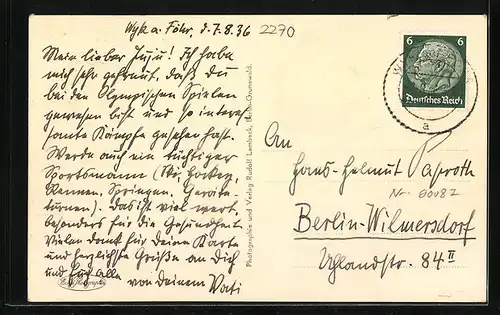 Wyk a. Föhr, d. 7.8.36
2270
Mein lieber Juju! Ich habe
mich sehr gefreut, daß du
bei den Olympischen Spielen
gewesen bist und so interes
sante Kämpfe gesehen hast.
Werde auch ein tüchtiger
Sportsmann (Ski, Hockey,
Rennen, Springen, Geräte-
turnen). Das ist viel wert,
besonders für die Gesundheit.
Vielen Dank für Deine Karte
und herzlichste Grüße an Dich
und Euch alle von Deinem Vati
Photographie und Verlag Rudolf Lambeck, Berlin-Grunewald.
6 6
Deutsches Reich
a
An
Hans-Helmut Paproth
Nr. 80082
Berlin-Wilmersdorf
Uhlandstr. 84 II